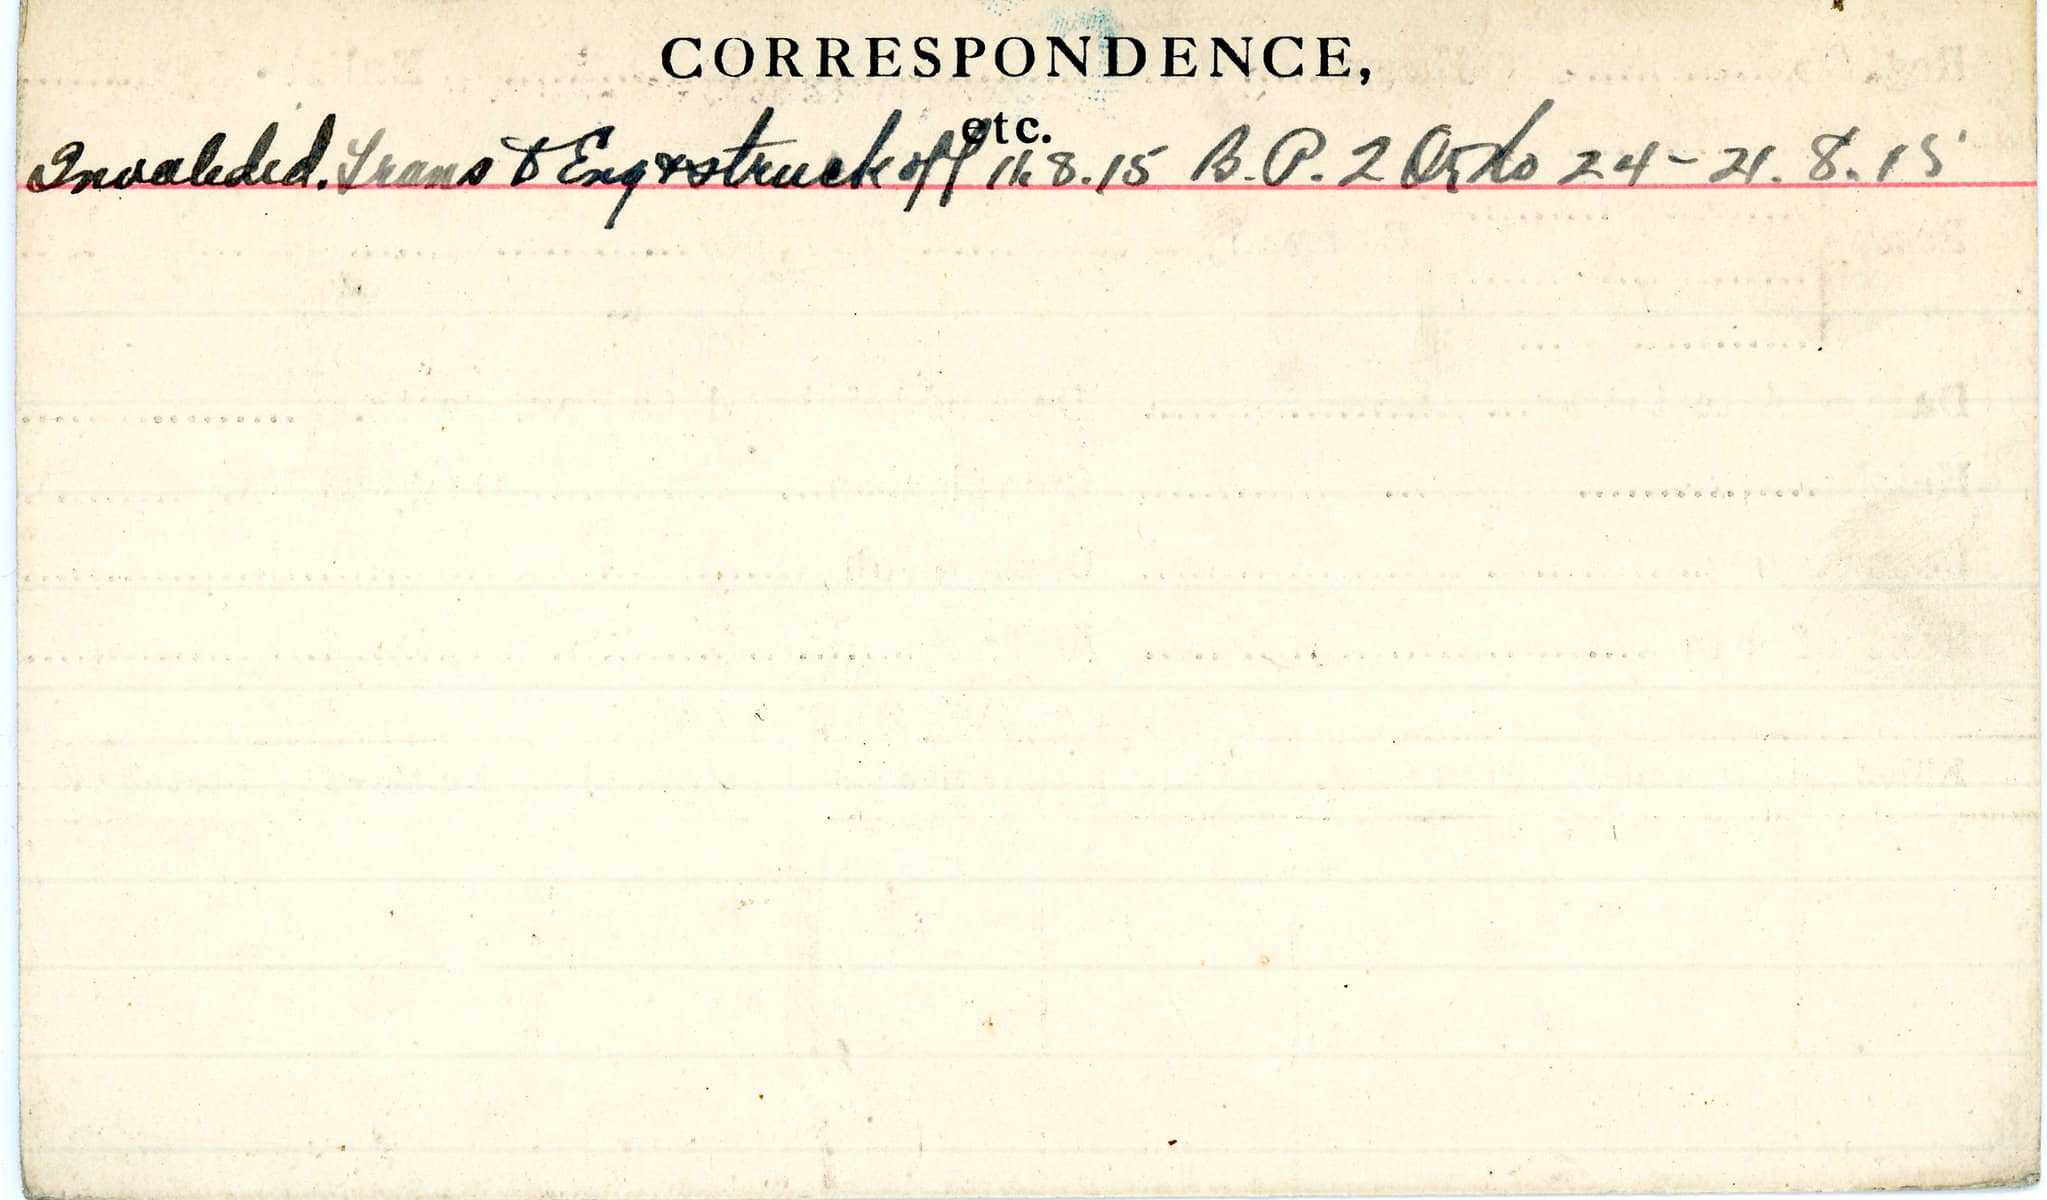 CORRESPONDENCE,
etc.
Invalided. Trans to Eng & struck off 8.15 B. P. 2 Ordo 24 - 21. 8. 15